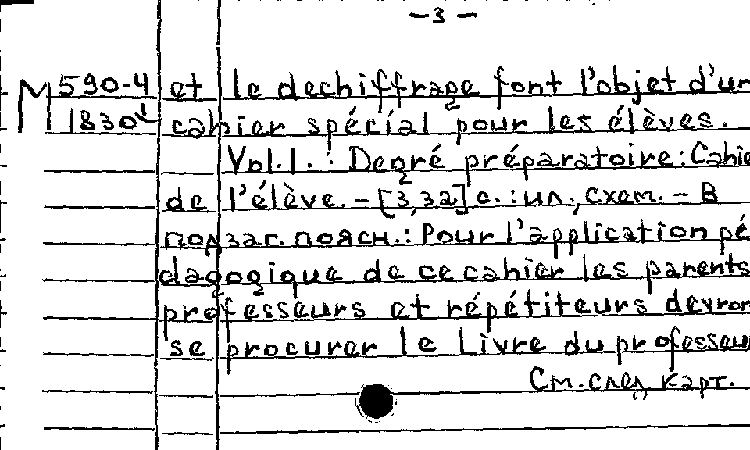 -3-
М 590-4 et le dechiffrage font l'objet d'un
1830 cahier spécial pour les élèves.
Vol.1.: Degré préparatoire: Cahie
de l'élève. - [3,32] с.: ил., схем. - В
подзаг. поясн.: Pour l'application pé
dagogique de ce cahier les parents
professeurs et répétiteurs devron
se procurer le Livre du professeu
См. след. карт.